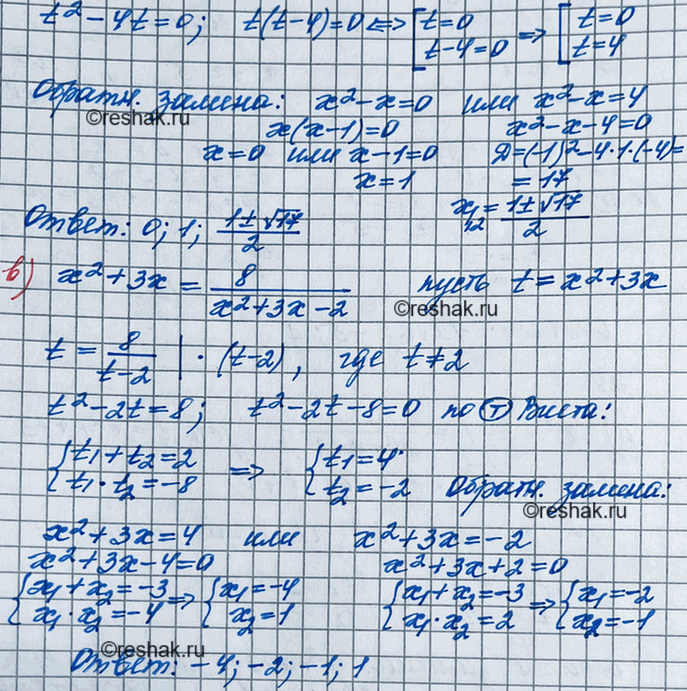 t² - 4t = 0; t(t-4) = 0 <=> [ t=0 => [ t=0
t-4=0 t=4
Обратн. замена: x²-x=0 или x²-x=4
©reshak.ru
x(x-1)=0 x²-x-4=0
x=0 или x-1=0 D=(-1)²-4·1·(-4)=
x=1 =17
Ответ: 0; 1; (1±√17)/2 x₁,₂ = (1±√17)/2
в) x²+3x = 8/(x²+3x-2) пусть t=x²+3x
©reshak.ru
t = 8/(t-2) | · (t-2), где t≠2
t²-2t=8; t²-2t-8=0 по Ⓣ Виета:
{ t₁+t₂=2 => { t₁=4
t₁·t₂=-8 t₂=-2 Обратн. замена:
©reshak.ru
x²+3x=4 или x²+3x=-2
x²+3x-4=0 x²+3x+2=0
{ x₁+x₂=-3 => { x₁=-4 { x₁+x₂=-3 => { x₁=-2
x₁·x₂=-4 x₂=1 x₁·x₂=2 x₂=-1
©reshak.ru
Ответ: -4; -2; -1; 1